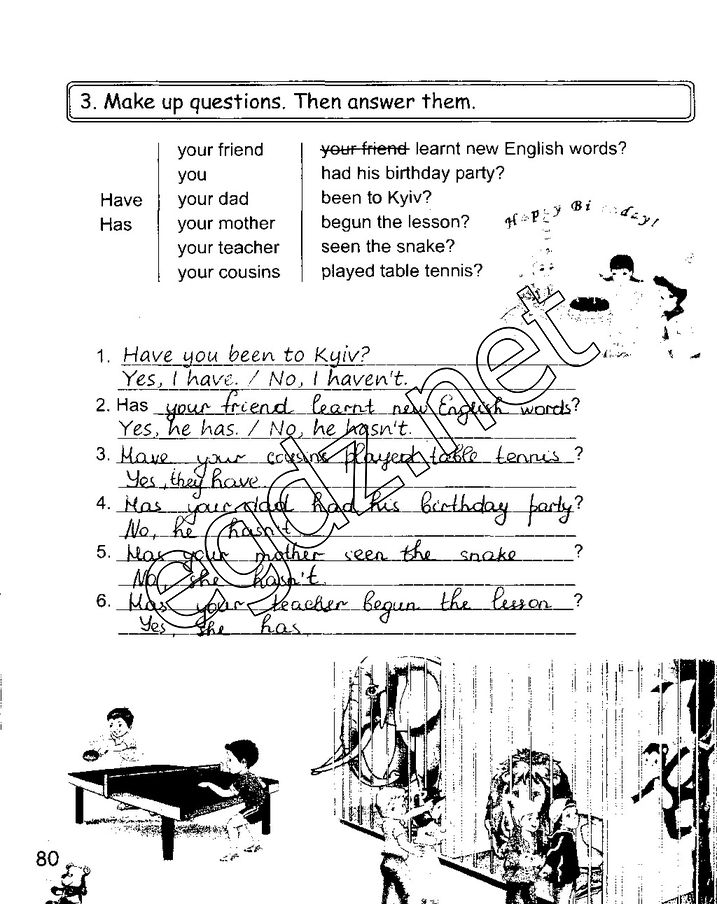 3. Make up questions. Then answer them.
your friend your friend learnt new English words?
you had his birthday party?
Have your dad been to Kyiv?
Has your mother begun the lesson?
your teacher seen the snake?
your cousins played table tennis?
Happy Birthday!
1. Have you been to Kyiv?
Yes, I have. / No, I haven't.
2. Has your friend learnt new English words?
Yes, he has. / No, he hasn't.
3. Have your cousins played table tennis?
Yes, they have
4. Has your dad had his birthday party?
No, he hasn't
5. Has your mother seen the snake?
No, she hasn't.
6. Has your teacher begun the lesson?
Yes, she has
egdz.net
80